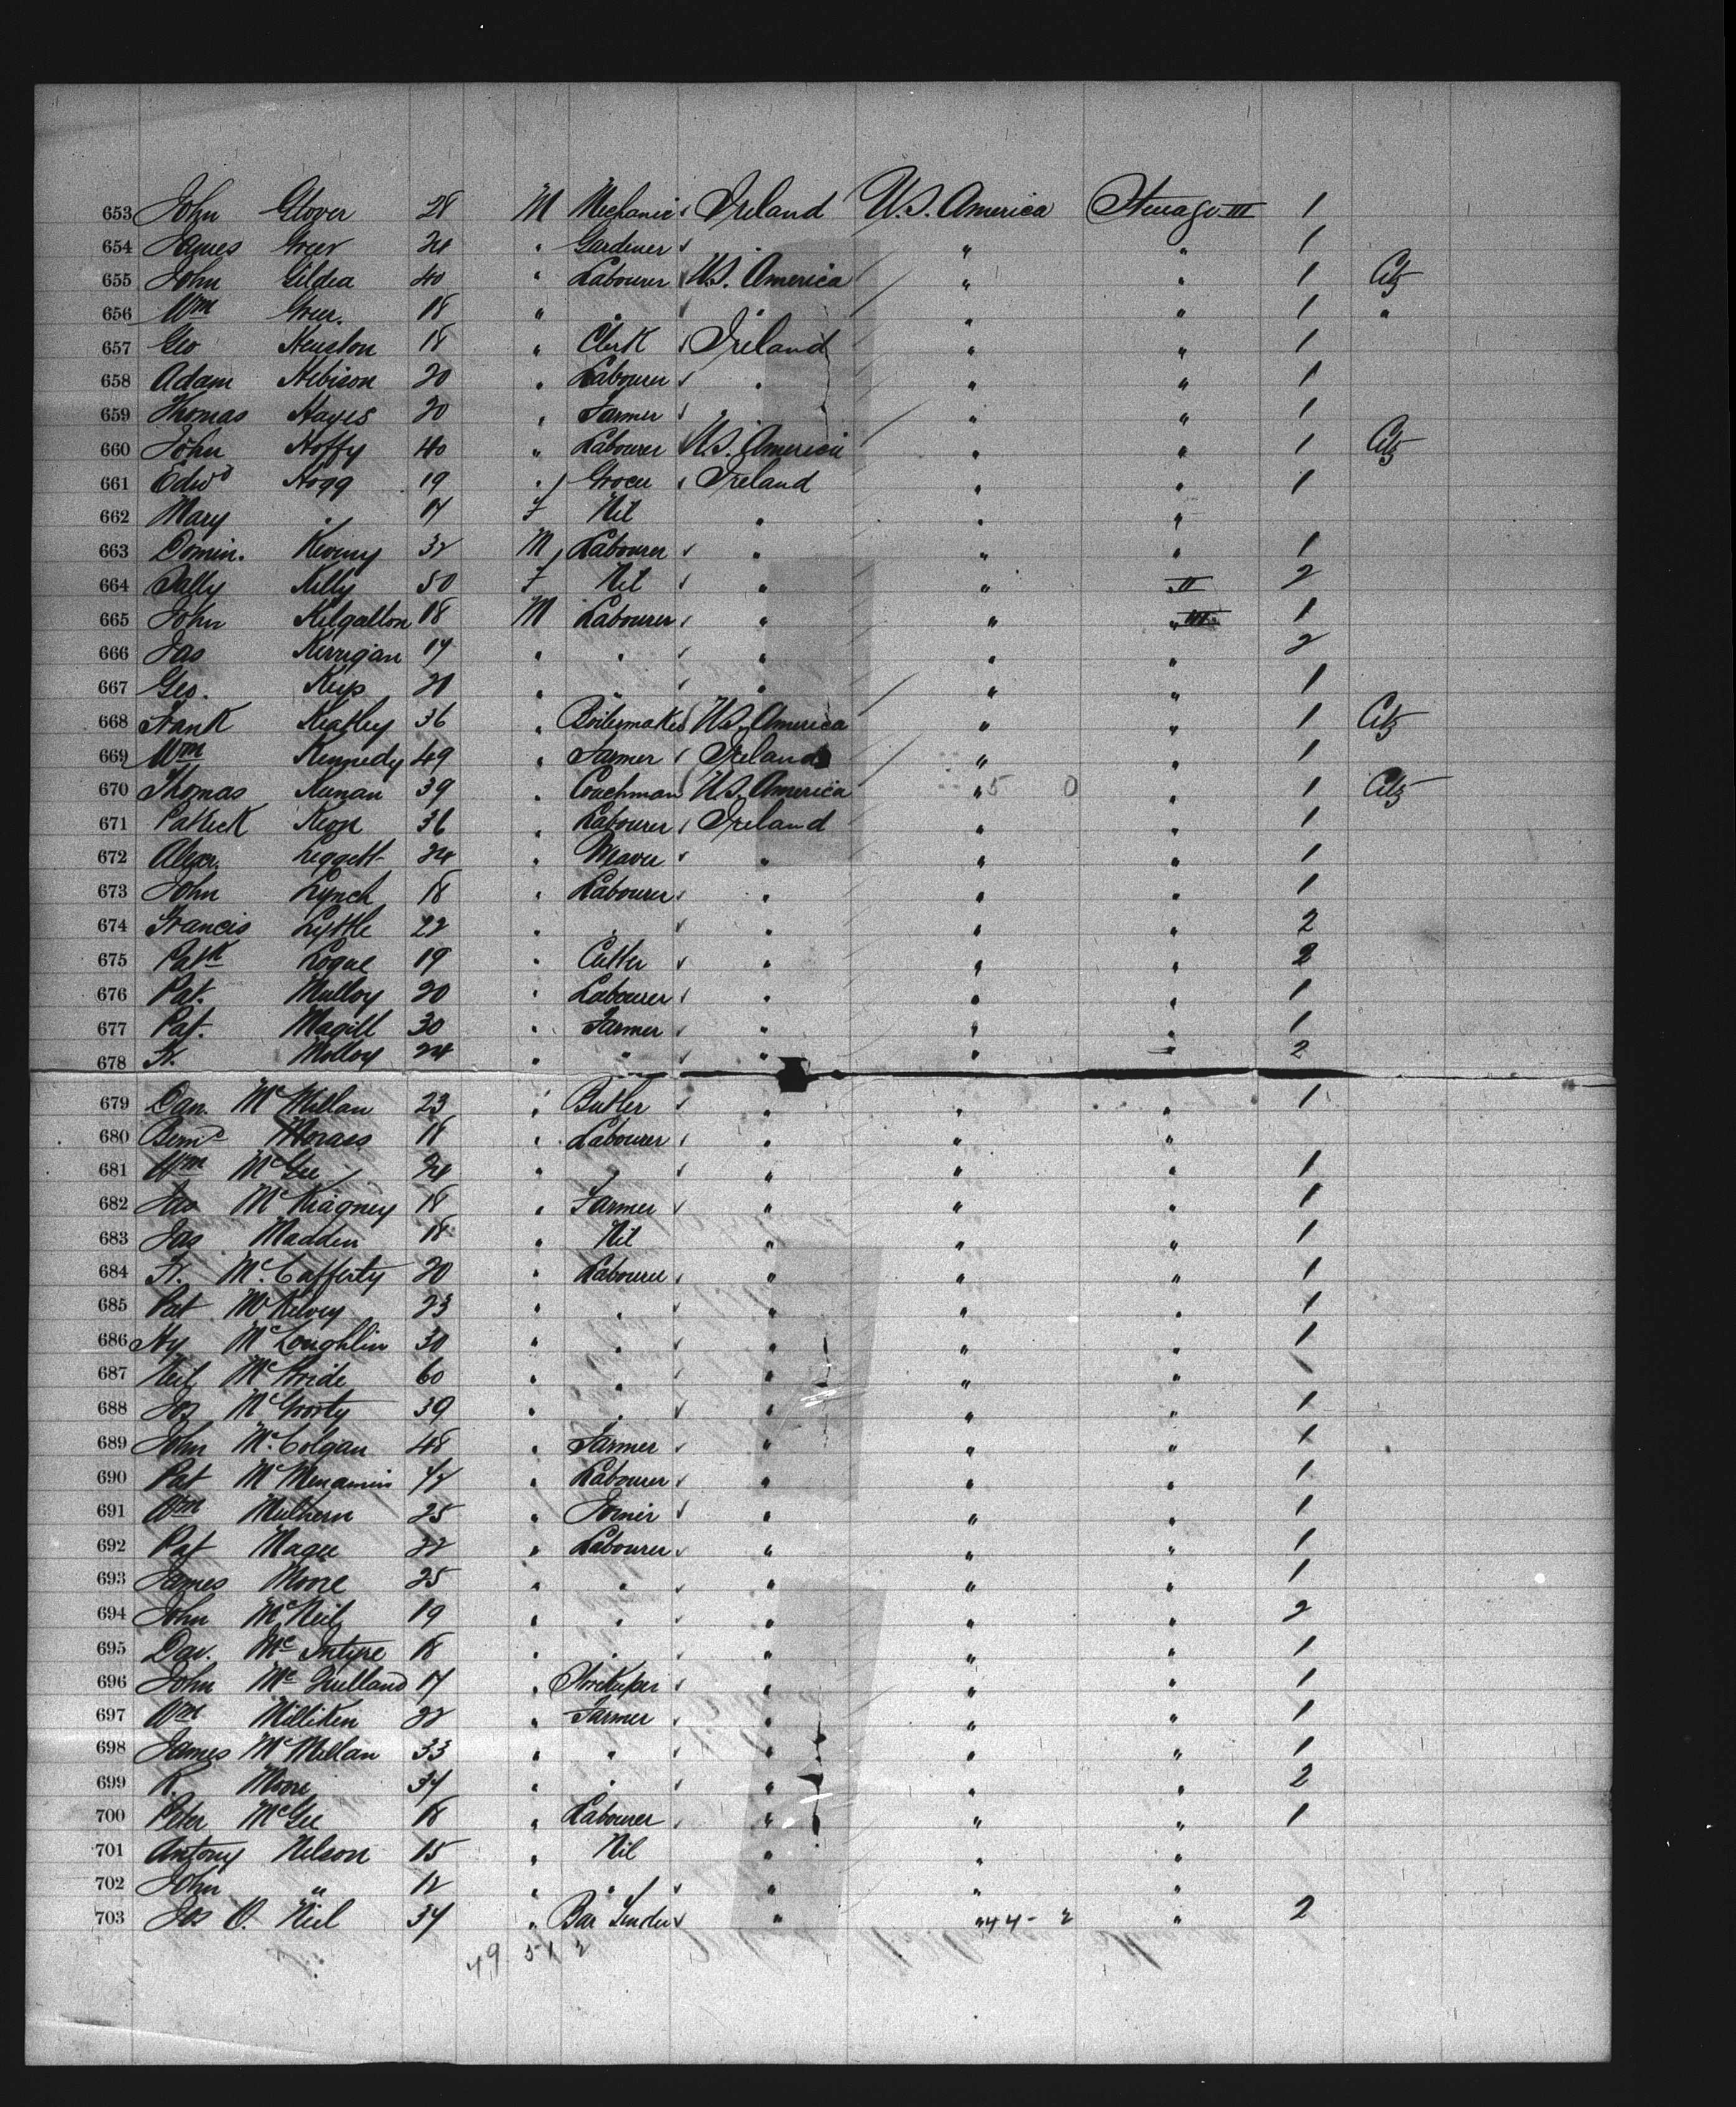 653 John Glover 28 M Mechanic Ireland U.S. America Steerage III 1
654 James Greer 24 " Gardener " " " 1
655 John Gildea 40 " Labourer U.S. America " " 1 Citz
656 Wm Greer. 18 " " " " " 1 "
657 Geo Heuston 18 " Clerk Ireland " " 1
658 Adam Hebison 20 " Labourer " " " 1
659 Thomas Hayes 20 " Farmer " " " 1
660 John Hoffy 40 " Labourer U.S. America " " 1 Citz
661 Edwd Hogg 19 " Grocer Ireland " " 1
662 Mary " 17 F Nil " " "
663 Domin. 32 M Labourer " " " 1
664 Sally Kelly 50 F Nil " " " II 2
665 John Kilgallon 18 M Labourer " " " III 1
666 Jas Kerrigan 17 " " " " " 2
667 Geo. 21 " " " " " 1
668 Frank Keatley 36 " Boilermaker U.S. America " " 1 Citz
669 Wm Kennedy 49 " Farmer Ireland " " 1
670 Thomas Keenan 39 " Coachman U.S. America " 5 0 " 1 Citz
671 Patrick Keon 36 " Labourer Ireland " " 1
672 Alexr. Leggett 24 " Weaver " " " 1
673 John Lynch 18 " Labourer " " " 1
674 Francis Lyttle 22 " " " " " 2
675 Patk Logue 19 " Cutter " " " 2
676 Pat. Mulloy 20 " Labourer " " " 1
677 Pat. Magill 30 " Farmer " " " 1
678 H. Molloy 24 " " " " " 2
679 Dan. McMillan 23 " Butler " " " 1
680 Bernd 18 " Labourer " " "
681 Wm McGee 24 " " " " " 1
682 Jas McKiagney 18 " Farmer " " " 1
683 Jas Madden 18 " Nil " " " 1
684 H. McCafferty 20 " Labourer " " " 1
685 Pat McKelvey 23 " " " " " 1
686 Hy McLoughlin 30 " " " " " 1
687 Neil McBride 60 " " " " " 1
688 Jos McGrorty 39 " " " " " 1
689 John McColgan 48 " Farmer " " " 1
690 Pat McMenamin 42 " Labourer " " " 1
691 Wm Mulhern 25 " Joiner " " " 1
692 Pat Magee 32 " Labourer " " " 1
693 James Moore 25 " " " " " 1
694 John McNeil 19 " " " " " 2
695 Dav. McIntyre 18 " " " " " 1
696 John 17 " Storekeeper " " " 1
697 Wm Milliken 22 " Farmer " " " 1
698 James McMillan 33 " " " " " 1
699 R. Moore 34 " " " " " 2
700 Peter McGee 18 " Labourer " " " 1
701 Antony Nelson 15 " Nil " " "
702 John " 12 " " " " "
703 Jos O. Neil 34 " Bar Tender " " 44 - 2 " 2
49 51 2